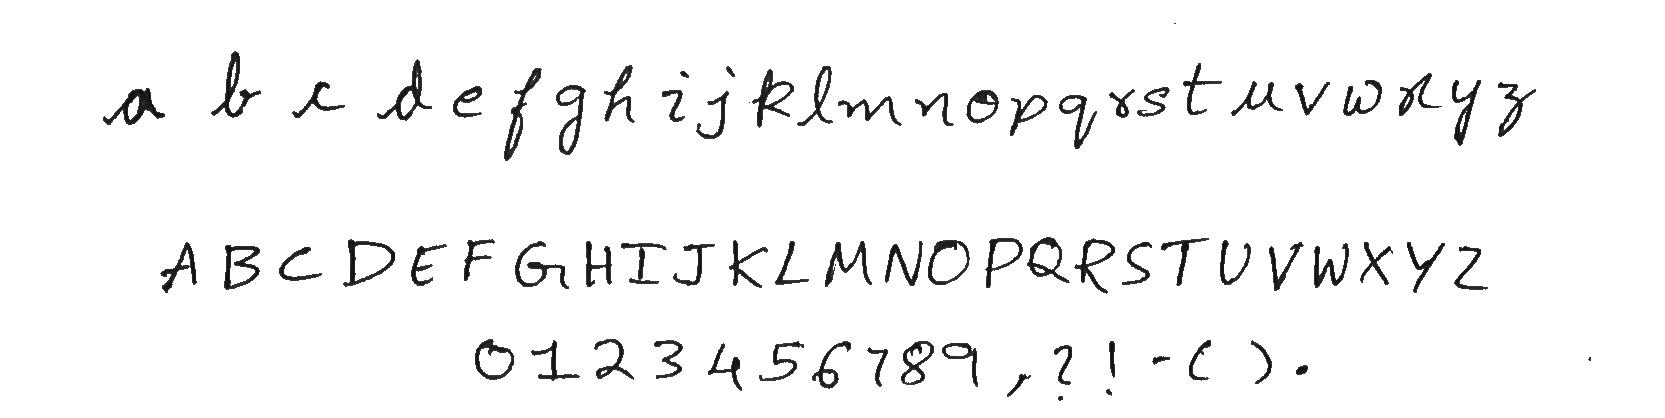 a b c d e f g h i j k l m n o p q r s t u v w x y z
A B C D E F G H I J K L M N O P Q R S T U V W X Y Z
0 1 2 3 4 5 6 7 8 9 , ? ! - ( ) .